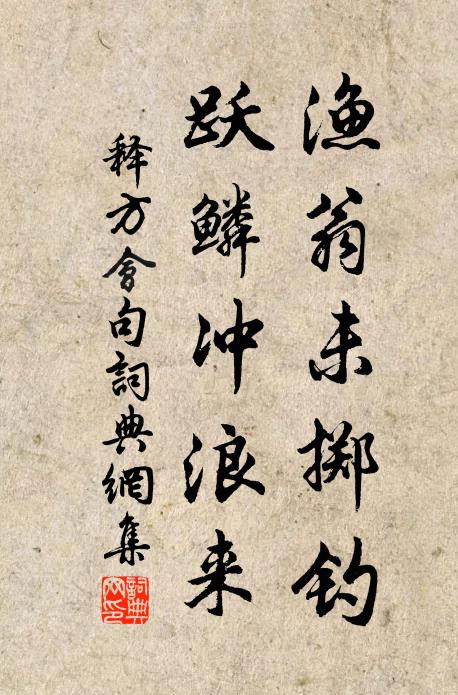 渔翁未掷钓
跃鳞冲浪来
释方會句詞典網集
詞典網印